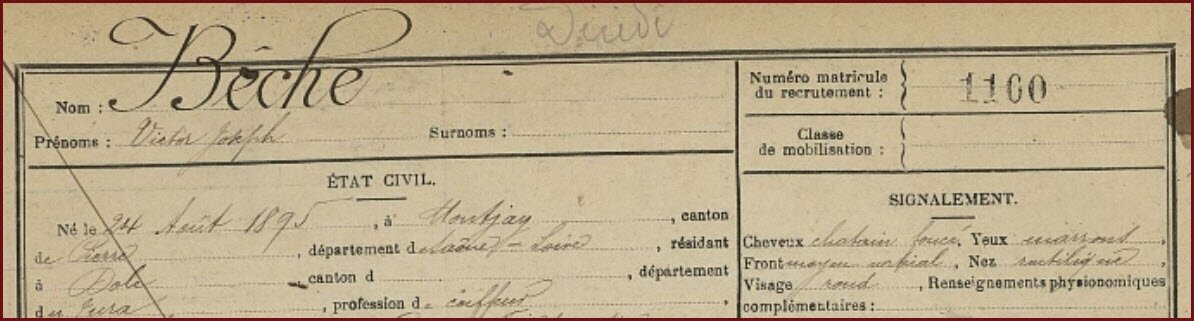 Bêche
Nom :
Numéro matricule
du recrutement : 1160
Prénoms : Victor Joseph Surnoms :
Classe
de mobilisation :
ÉTAT CIVIL.
Né le 24 Août 1895, à Montjay, canton
de Pierre, département de Saône-et-Loire, résidant
à Dole, canton d, département
du Jura, profession de coiffeur
SIGNALEMENT.
Cheveux chatain foncé, Yeux marrons,
Front moyen, Nez rectiligne,
Visage rond, Renseignements physionomiques
complémentaires :